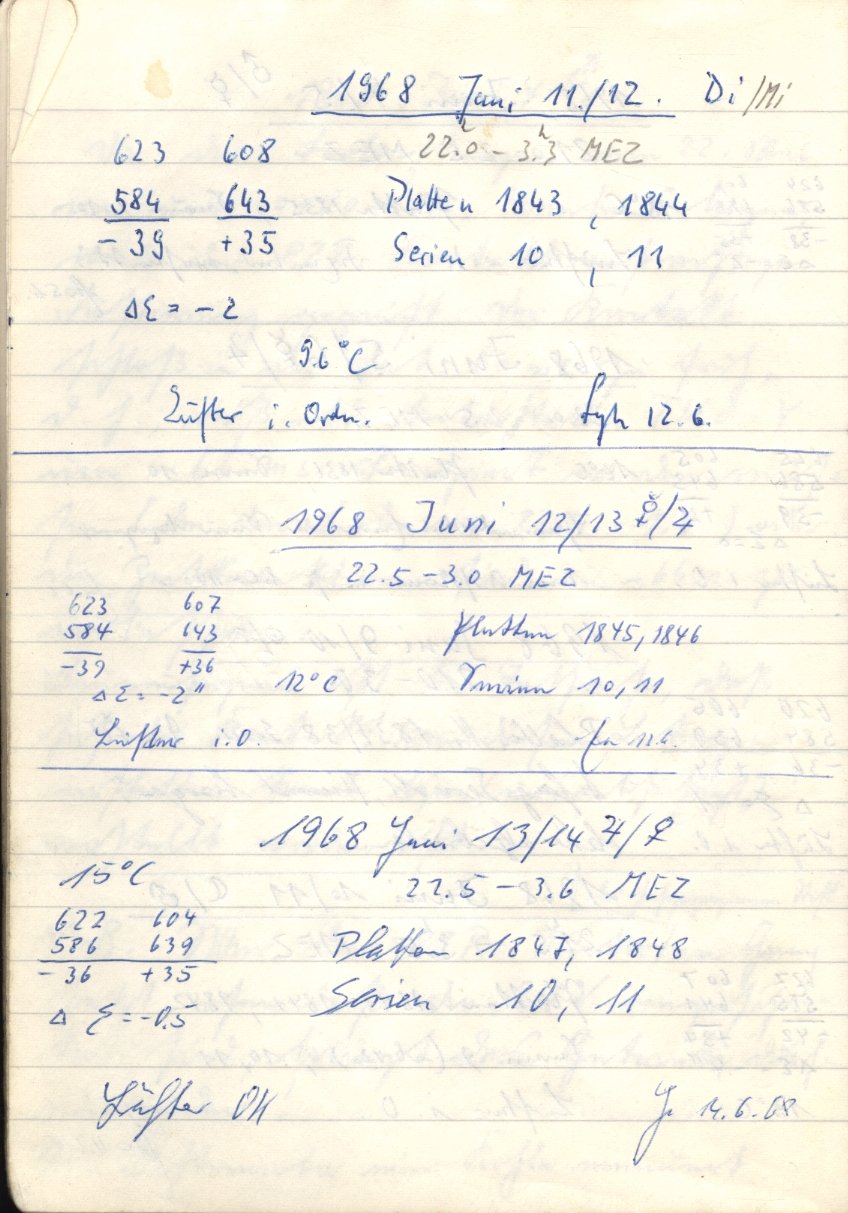 1968 Juni 11./12. Di/Mi
22.0h - 3.3h MEZ
623 608
584 643
- 39 +35
Platten 1843, 1844
Serien 10, 11
Δε = - 2
9.6°C
Lüfter i. Ordn. 12.6.
1968 Juni 12/13 ☿/♃
22.5 - 3.0 MEZ
623 607
584 643
-39 +36
Platten 1845, 1846
Serien 10, 11
Δε = -2" 12°C
Lüfter i.O.
1968 Juni 13/14 ♃/♀
15°C
22.5 - 3.6 MEZ
622 604
586 639
- 36 +35
Platten 1847, 1848
Serien 10, 11
Δ ε = -0,5
Lüfter OK 14.6.68